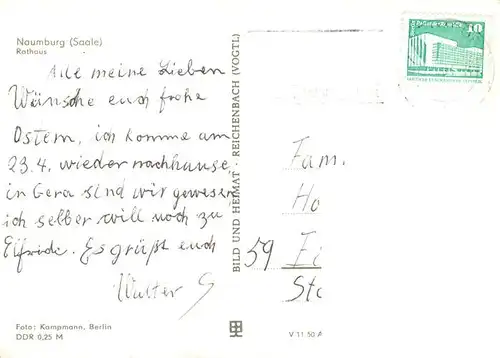 Naumburg (Saale)
Rathaus
Alle meine Lieben
Wünsche euch frohe
Ostern, ich komme am
23.4. wieder nachhause.
in Gera sind wir gewesen
ich selber will noch zu
Elfriede. Es grüßt euch
Walter S
Foto: Kampmann, Berlin
DDR 0,25 M
BILD UND HEIMAT · REICHENBACH (VOGTL)
V 11 50 A
10
Fam.
Ho
59 Ei
Sta